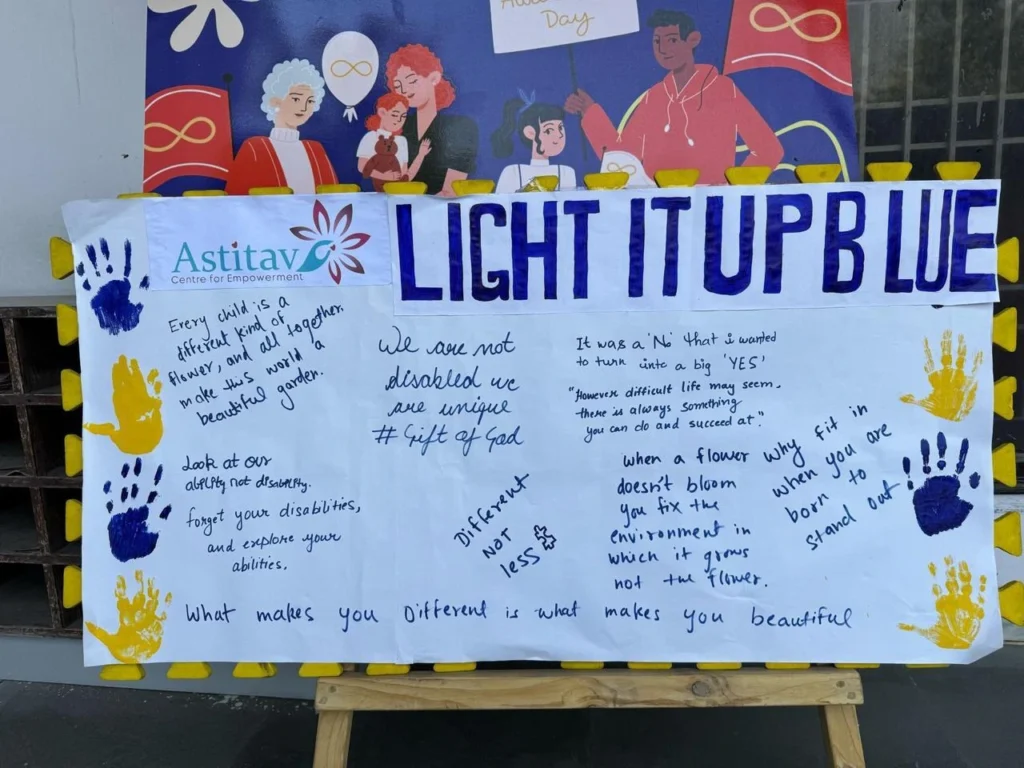 Day
Astitav
Centre for Empowerment
LIGHT IT UP BLUE
Every child is a
different kind of
flower, and all together,
make this world a
beautiful garden.
We are not
disabled we
are unique
# Gift of God
It was a 'No' that i wanted
to turn into a big 'YES'
"However difficult life may seem,
there is always something
you can do and succeed at."
Look at our
ability not disability.
forget your disabilities,
and explore your
abilities.
Different
NOT
less
when a flower
doesn't bloom
you fix the
environment in
which it grows
not the flower.
Why fit in
when you are
born to
stand out
What makes you Different is what makes you beautiful